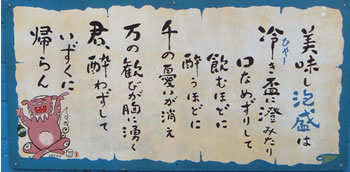 美味し泡盛は
冷き盃に澄みたり
ひやー
口なめずりして
飲むほどに
酔うほどに
千の憂いが消え
万の歓びが胸に湧く
君、酔わずして
いずくに
帰らん